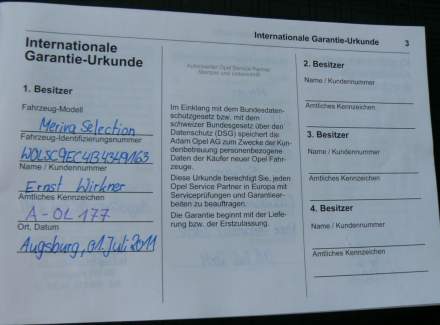 Internationale Garantie-Urkunde 3
Internationale
Garantie-Urkunde
1. Besitzer
Fahrzeug-Modell
Meriva Selection
Fahrzeug-Identifizierungsnummer
Name / Kundennummer
Ernst Wirkner
Amtliches Kennzeichen
A-OL 177
Ort, Datum
Augsburg, 01. Juli 2011
Autorisierter Opel Service Partner
Stempel und Unterschrift
Im Einklang mit dem Bundesdaten-
schutzgesetz bzw. mit dem
schweizer Bundesgesetz über den
Datenschutz (DSG) speichert die
Adam Opel AG zum Zwecke der Kun-
denbetreuung personenbezogene
Daten der Käufer neuer Opel Fahr-
zeuge.
Diese Urkunde berechtigt Sie, jeden
Opel Service Partner in Europa mit
Serviceprüfungen und Garantiear-
beiten zu beauftragen.
Die Garantie beginnt mit der Liefe-
rung bzw. der Erstzulassung.
2. Besitzer
Name / Kundennummer
Amtliches Kennzeichen
3. Besitzer
Name / Kundennummer
Amtliches Kennzeichen
4. Besitzer
Name / Kundennummer
Amtliches Kennzeichen